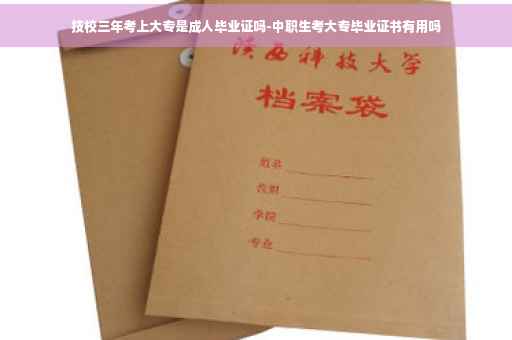 技校三年考上大专是成人毕业证吗-中职生考大专毕业证书有用吗
陕西科技大学
档案袋
姓名
学院
专业